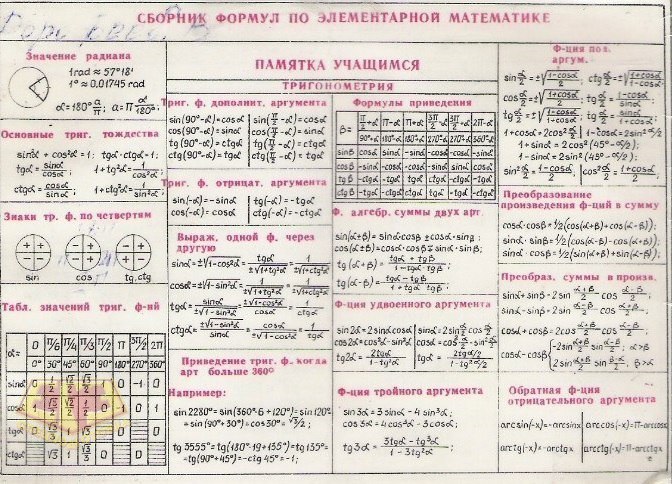 СБОРНИК ФОРМУЛ ПО ЭЛЕМЕНТАРНОЙ МАТЕМАТИКЕ
ПАМЯТКА УЧАЩИМСЯ
ТРИГОНОМЕТРИЯ
Значение радиана
1 rad ≈ 57°18'
1° ≈ 0,01745 rad
α=180° a/π; a=π α/180°;
Основные триг. тождества
sin²α + cos²α = 1; tgα·ctgα=1;
tgα= sinα/cosα; 1+tg²α= 1/cos²α;
ctgα= cosα/sinα; 1+ctg²α= 1/sin²α;
Знаки тр. ф. по четвертям
+ + - + - +
- - - + + -
sin cos tg, ctg
Табл. значений триг. ф-ий
α= 0 π/6 π/4 π/3 π/2 π 3π/2 2π
0° 30° 45° 60° 90° 180° 270° 360°
sinα 0 1/2 √2/2 √3/2 1 0 -1 0
cosα 1 √3/2 √2/2 1/2 0
tgα 0 √3/3 1 √3 0 0
ctgα √3 1 √3/3 0 0
Триг. ф. дополнит. аргумента
sin(90°-α)=cosα sin(π/2-α)=cosα
cos(90°-α)=sinα cos(π/2-α)=sinα
tg(90°-α)=ctgα tg(π/2-α)=ctgα
ctg(90°-α)=tgα ctg(π/2-α)=tgα
Триг. ф. отрицат. аргумента
sin(-α)=-sinα tg(-α)=-tgα
cos(-α)=cosα ctg(-α)=-ctgα
Выраж. одной ф. через другую
sinα=±√1-cos²α= tgα/±√1+tg²α = 1/±√1+ctg²α
cosα=±√1-sin²α= 1/±√1+tg²α = ctgα/±√1+ctg²α
tgα= sinα/±√1-sin²α = ±√1-cos²α/cosα = 1/ctgα
ctgα= ±√1-sin²α/sinα = cosα/±√1-cos²α = 1/tgα
Приведение триг. ф. когда
арт больше 360°
Например:
sin 2280°=sin(360°·6+120°)=sin120°
=sin(90°+30°)=cos30°= √3/2;
tg 3555°=tg(180°·19+135°)=tg135°=
=tg(90°+45°)=-ctg 45°=-1;
Формулы приведения
β= π/2+α π-α π+α 3π/2-α 3π/2+α 2π-α
90°+α 180°-α 180°+α 270°-α 270°+α 360°-α
sinβ cosα sinα -sinα -cosα -cosα -sinα
cosβ -sinα -cosα -cosα -sinα sinα cosα
tgβ -ctgα -tgα tgα ctgα -ctgα -tgα
ctgβ -tgα -ctgα ctgα tgα -tgα -ctgα
Ф. алгебр. суммы двух арг.
sin(α±β)=sinα·cosβ±cosα·sinβ;
cos(α±β)=cosα·cosβ∓sinα·sinβ;
tg(α+β)= tgα + tgβ/1-tgα·tgβ;
tg(α-β)= tgα - tgβ/1+tgα·tgβ;
Ф-ция удвоенного аргумента
sin2α=2sinα·cosα; sinα=2sin α/2·cos α/2
cos2α=cos²α-sin²α; cosα=cos² α/2-sin² α/2
tg2α= 2tgα/1-tg²α; tgα= 2tg α/2/1-tg² α/2
Ф-ция тройного аргумента
sin3α=3sinα-4sin³α;
cos3α=4cos³α-3cosα;
tg3α= 3tgα-tg³α/1-3tg²α;
Ф-ция пол. аргум.
sin α/2=±√1-cosα/2; ctg α/2=±√1+cosα/1-cosα;
cos α/2=±√1+cosα/2; tg α/2= 1-cosα/sinα;
1+cosα=2cos² α/2 1-cosα=2sin² α/2;
1+sinα=2cos²(45°-α/2);
1-sinα=2sin²(45°-α/2);
sin² α/2= 1-cosα/2 cos² α/2= 1+cosα/2
Преобразование
произведения ф-ций в сумму
cosα·cosβ=1/2(cos(α+β)+cos(α-β));
sinα·sinβ=1/2(cos(α-β)-cos(α+β));
sinα·cosβ=1/2(sin(α+β)+sin(α-β));
Преобраз. суммы в произв.
sinα+sinβ=2sin α+β/2 cos α-β/2;
sinα-sinβ=2sin α-β/2 cos α+β/2;
cosα+cosβ=2cos α+β/2 cos α-β/2;
cosα-cosβ -2sin α+β/2 sin α-β/2, α>β
2sin α+β/2 sin β-α/2, β>α
Обратная ф-ция
отрицательного аргумента
arcsin(-x)=-arcsinx arccos(-x)=π-arccosx
arctg(-x)=-arctgx arcctg(-x)=π-arcctgx